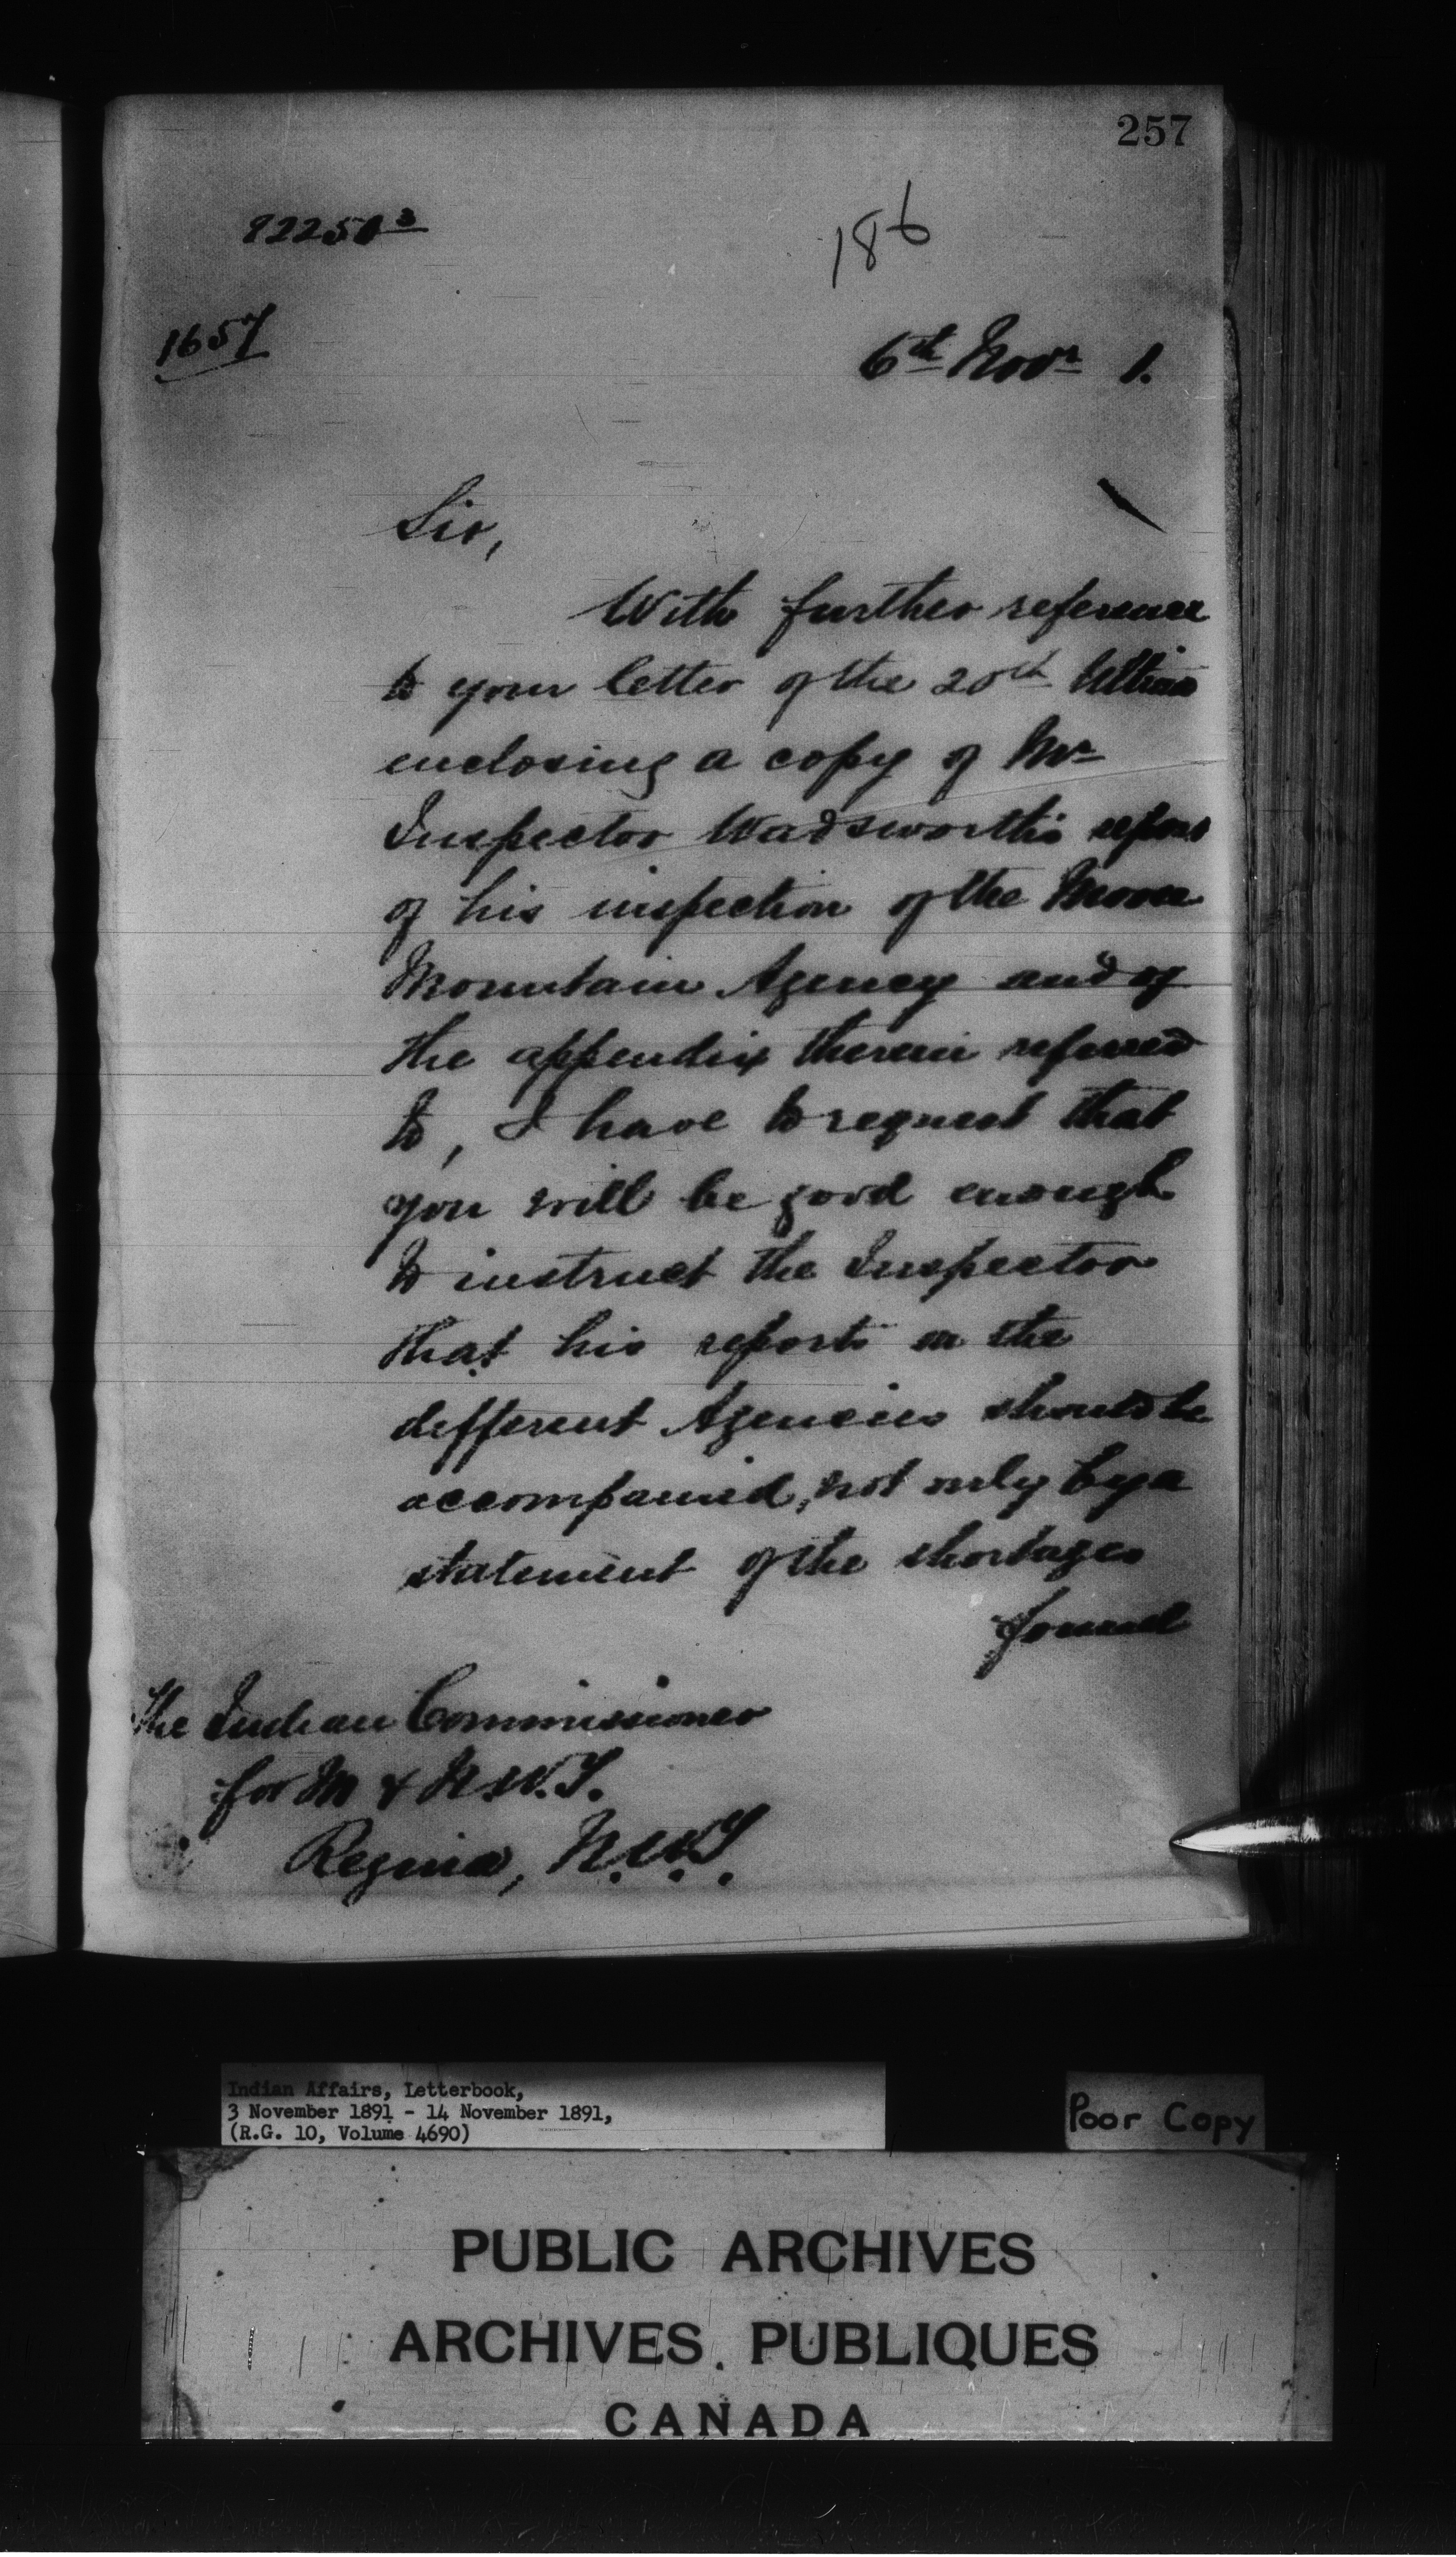 257
186
1657
6th Novr 1.
Sir,
With further reference
to your letter of the 20th Ultimo
enclosing a copy of Mr
Inspector Wadsworth's report
of his inspection of the Moose
Mountain Agency and of
the appendix therein referred
to, I have to request that
you will be good enough
to instruct the Inspector
that his reports on the
different Agencies should be
accompanied, not only by a
statement of the shortages
found
The Indian Commissioner
for M & N.W.T.
Regina, N.W.T.
Indian Affairs, Letterbook,
3 November 1891 - 14 November 1891,
(R.G. 10, Volume 4690)
Poor Copy
PUBLIC ARCHIVES
ARCHIVES PUBLIQUES
CANADA